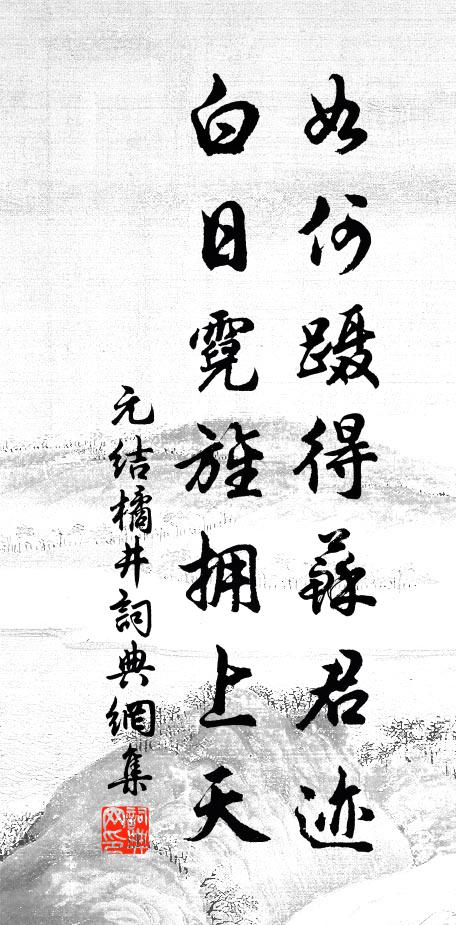 如何蹑得蘇君迹
白日霓旌拥上天
元结橘井詞典網集